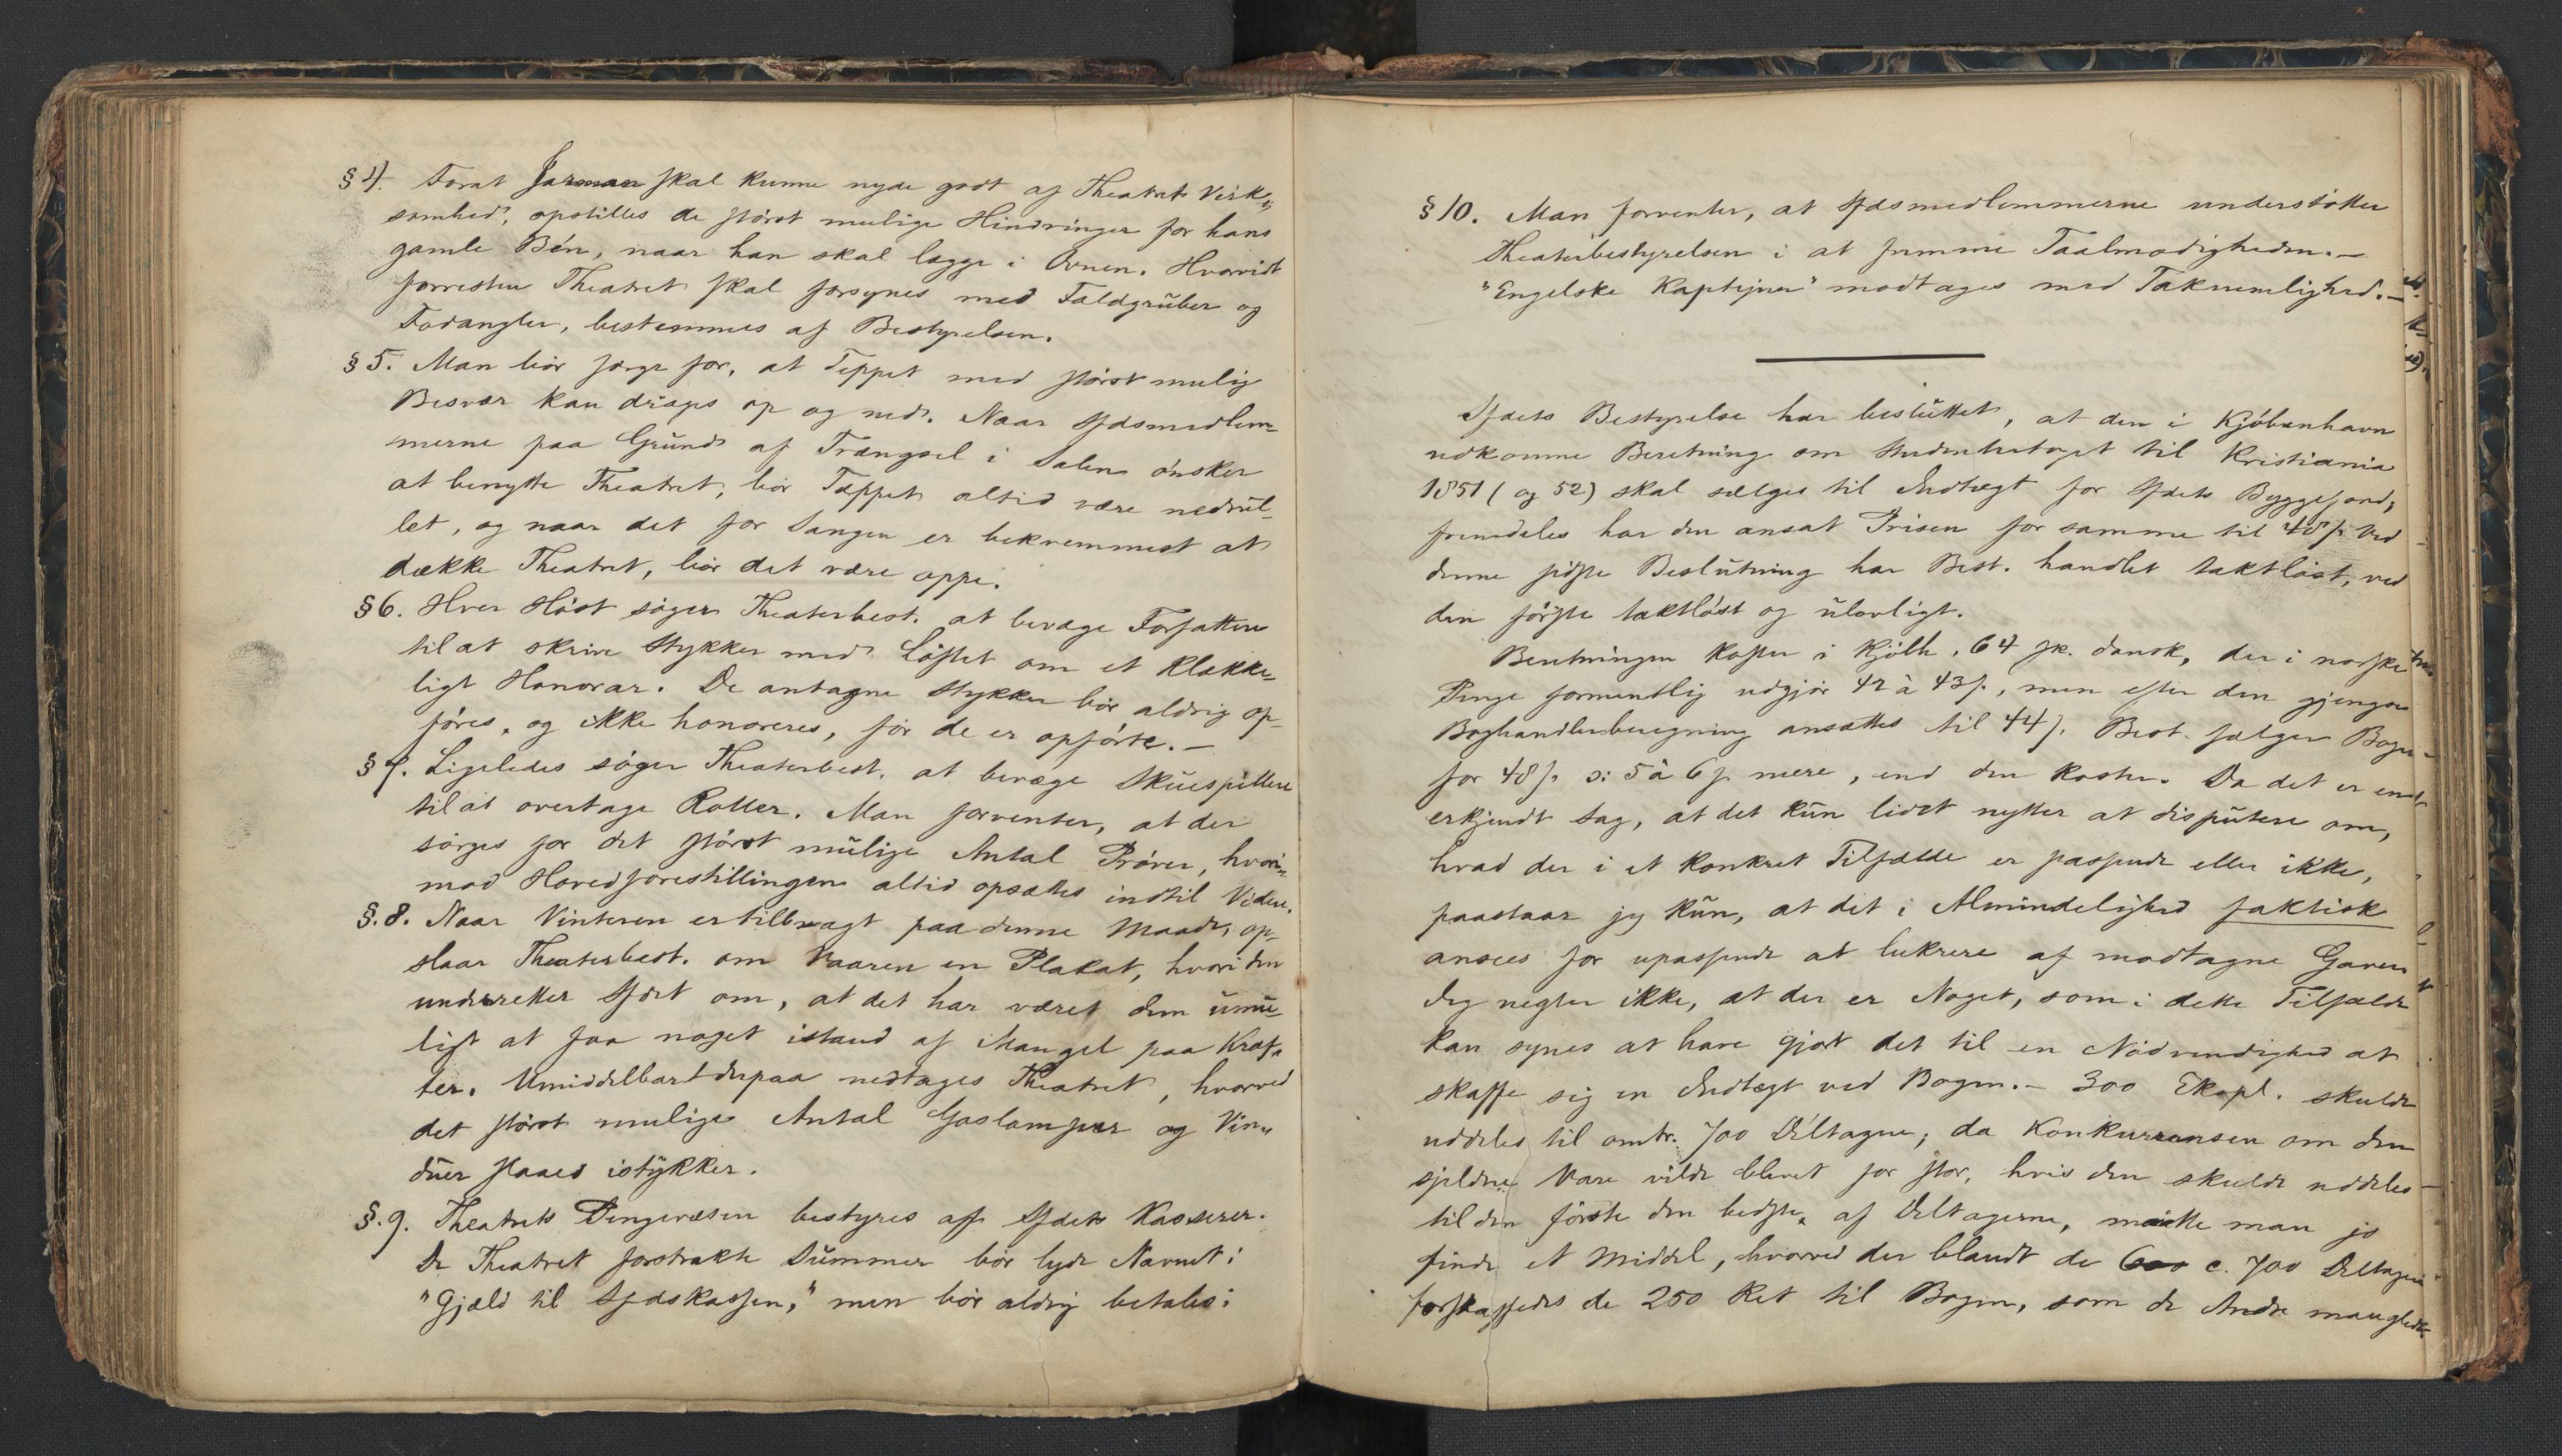 §4. Forat Jarman skal kunne nyde godt af Theatrets Virk-
somhed, opstilles de størst mulige Hindringer for hans
gamle Bén, naar han skal lægge i Ovnen. Hvorvidt
forresten Theatret skal forsynes med Faldgruber og
Fodangler, bestemmes af Bestyrelsen.
§5. Man bør sørge for, at Teppet med størst mulig
Besvær kan drages op og ned. Naar Sfdsmedlem-
merne paa Grund af Trængsel i Salen ønsker
at benytte Theatret, bør Tæppet altid være nedrul-
let, og naar det for Sangen er bekvemmest at
dække Theatret, bør det være oppe.
§6. Hver Høst søger Theaterbest. at bevæge Forfattere
til at skrive Stykker med Løftet om et klække-
ligt Honorar. De antagne Stykker bør aldrig op-
føres, og ikke honoreres, før de er opførte.—
§7. Ligeledes søger Theaterbest. at bevæge Skuespillere
til at overtage Roller. Man forventer, at der
sørges for det størst mulige Antal Prøver, hvori-
mod Hovedforestillingen altid opsættes indtil Videre.
§.8. Naar Vinteren er tilbragt paa denne Maade, op-
slaar Theaterbest. om Vaaren en Plakat, hvori den
underretter Sfdet om, at det har været dem umu-
ligt at faa noget istand af Mangel paa Kræf-
ter. Umiddelbart derpaa nedtages Theatret, hvorved
det størst mulige Antal Gaslamper og Vin-
duer slaaes istykker.
§.9. Theatrets Pengevæsen bestyres af Sfdets Kasserer.
De Theatret forstrakte Summer bør lyde Navnet:
"Gjæld til Sfdskassen," men bør aldrig betales:
§10. Man forventer, at Sfdsmedlemmerne understøtter
Theaterbestyrelsen i at fremme Taalmodigheden.—
"Engelske Kaptejner" modtages med Taknemlighed.—
Sfdets Bestyrelse har besluttet, at den i Kjøbenhavn
udkomne Beretning om Studentertoget til Kristiania
1851 (og 52) skal sælges til Indtægt for Sfdets Byggefond;
fremdeles har den ansat Prisen for samme til 48 s. Ved
denne sidste Beslutning har Best. handlet taktløst, ved
den første taktløst og ulovligt.
Beretningen koster i Kjøbh. 64 sk. dansk, der i norske
Penge formentlig udgjør 42 à 43 s., men efter den gjengse
Boghandlerberegning ansættes til 44 s. Best. sælger Bogen
for 48 s. ɔ: 5 à 6 s. mere, end den koster. Da det er en
erkjendt Sag, at det kun lidet nytter at disputere om,
hvad der i et konkret Tilfælde er passende eller ikke,
paastaar jeg kun, at det i Almindelighed faktisk
ansees for upassende at lukrere af modtagne Gaver
Jeg negter ikke, at der er Noget, som i dette Tilfælde
kan synes at have gjort det til en Nødvendighed at
skaffe sig en Indtægt ved Bogen.— 300 Expl. skulde
uddeles til omtr. 700 Deltagere; da Konkurrensen om den
sjeldne Vare vilde blevet for stor, hvis den skulde uddeles
til den første den bedste af Deltagerne, maatte man jo
finde et Middel, hvorved der blandt de c. 700 Deltagere
forskaffedes de 250 Ret til Bogen, som de Andre manglede.